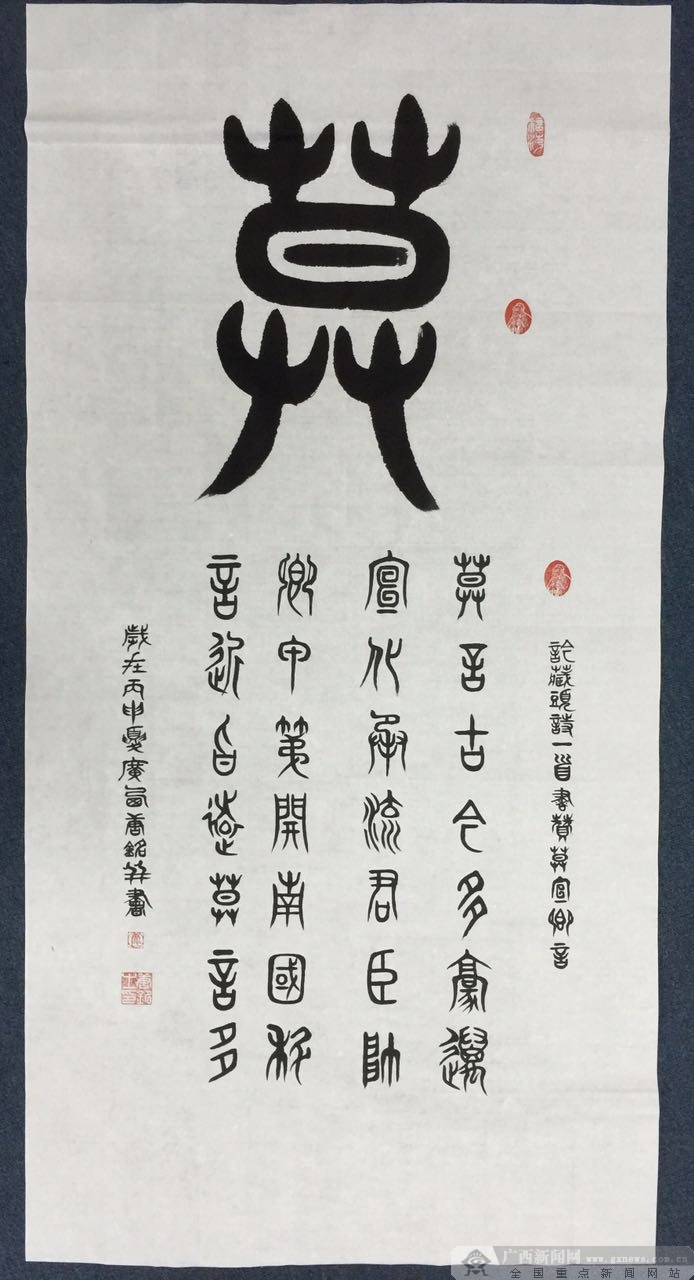 莫
藏頭詩一首書贊莫宣卿言
莫言古今多豪邁
宣化承流君臣帥
卿甲第開南國科
言近旨遠莫言多
歲在丙申夏廣西唐銘并書
广西新闻网 www.gxnews.com.cn
全国重点新闻网站